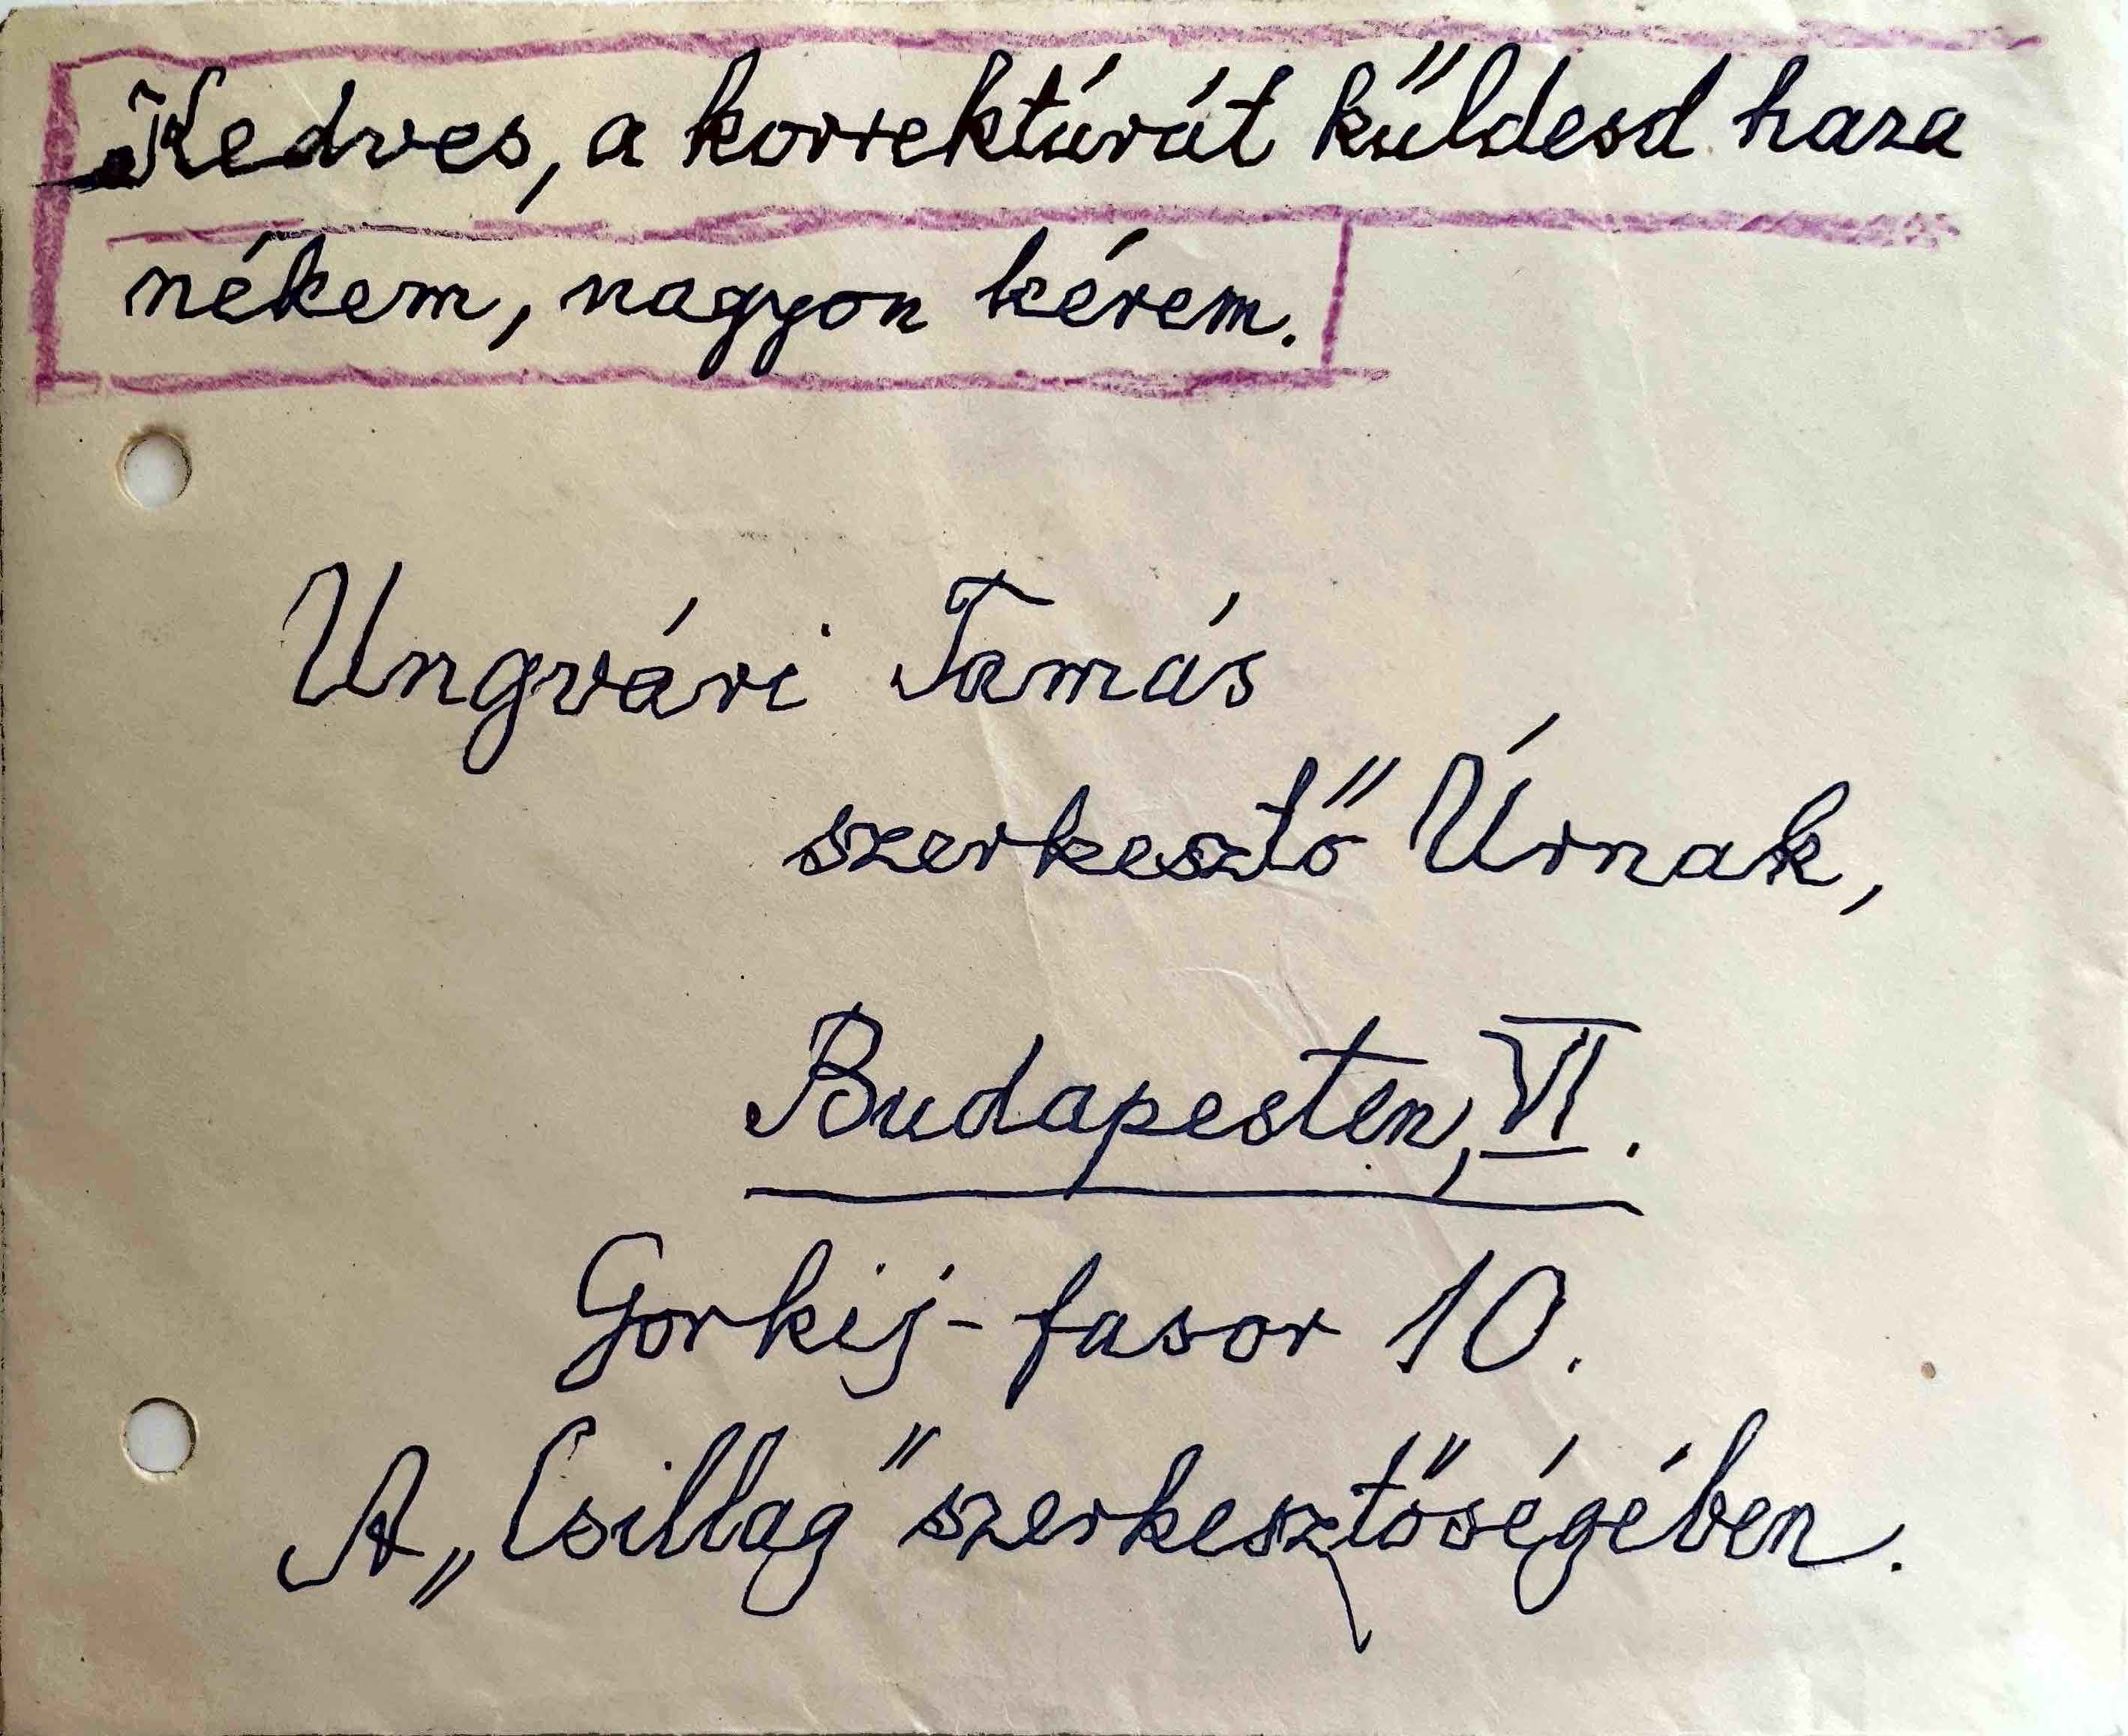 Kedves, a korrektúrát küldesd haza
nékem, nagyon kérem.
Ungvári Tamás
szerkesztő Úrnak,
Budapesten, VI.
Gorkij-fasor 10.
A „Csillag" szerkesztőségében.